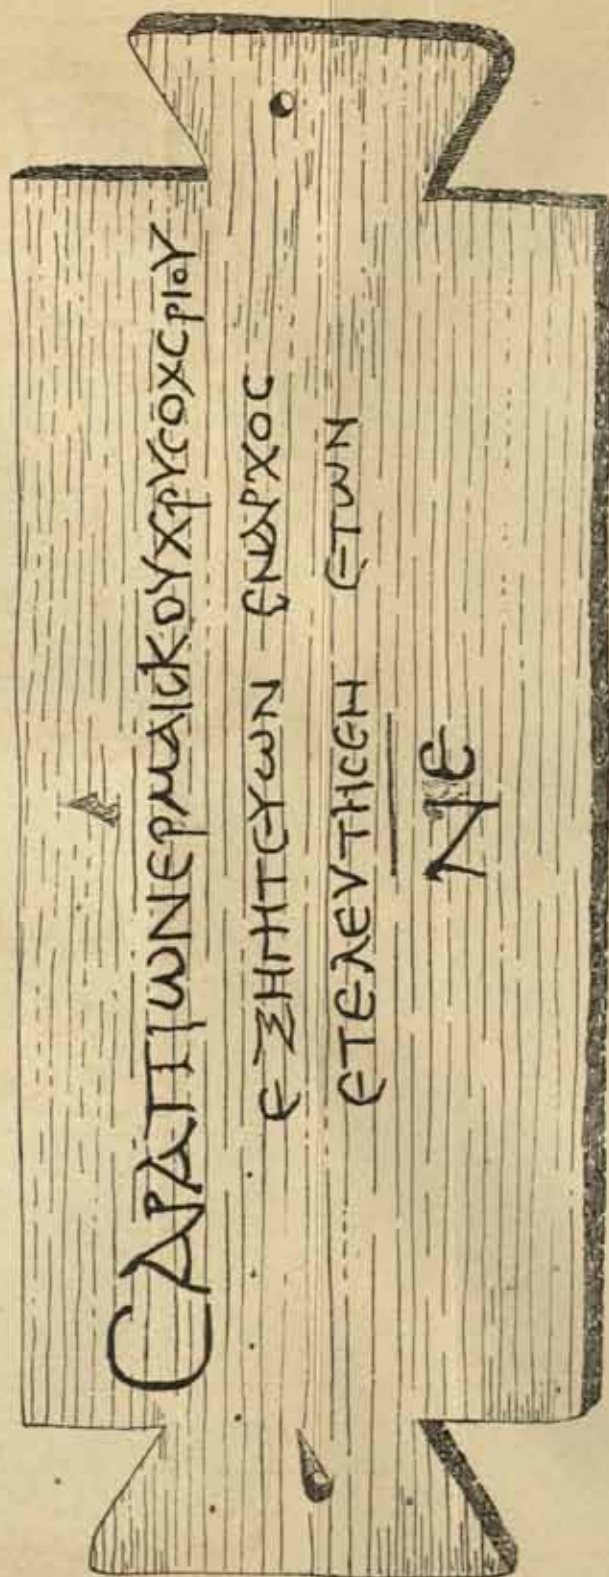 ϹΑΡΑΠΙΩΝΕΡΜΑΙϹΚΟΥΧΡΥϹΟΧϹΡΙΟΥ
ΕΞΗΓΗΤΕΥΩΝ ΕΝΑΡΧΟϹ
ΕΤΕΛΕΥΤΗϹΕΗ ΕΤΩΝ
ΝΕ